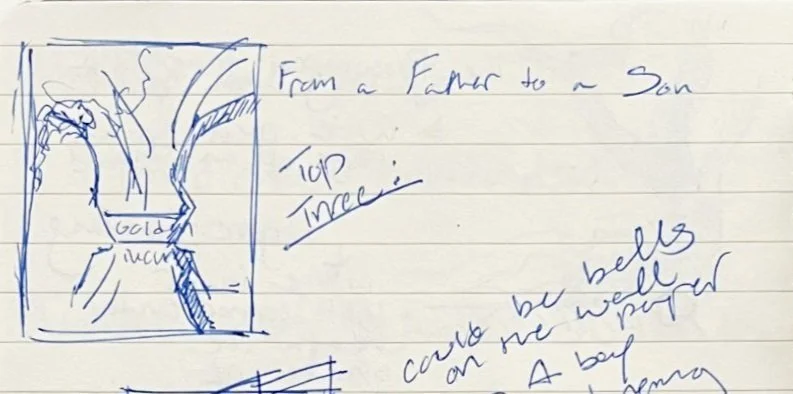 From a Father to a Son
Top
Three:
Golden
could be bells
on the wall
paper
A boy